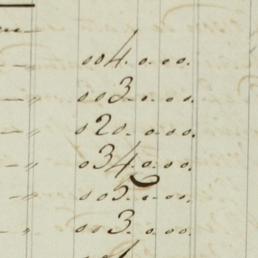 004.0.00.
— " 003.0.00.
— " 020.0.00.
— " 034.0.00.
— " 005.0.00.
— " 003.0.00.